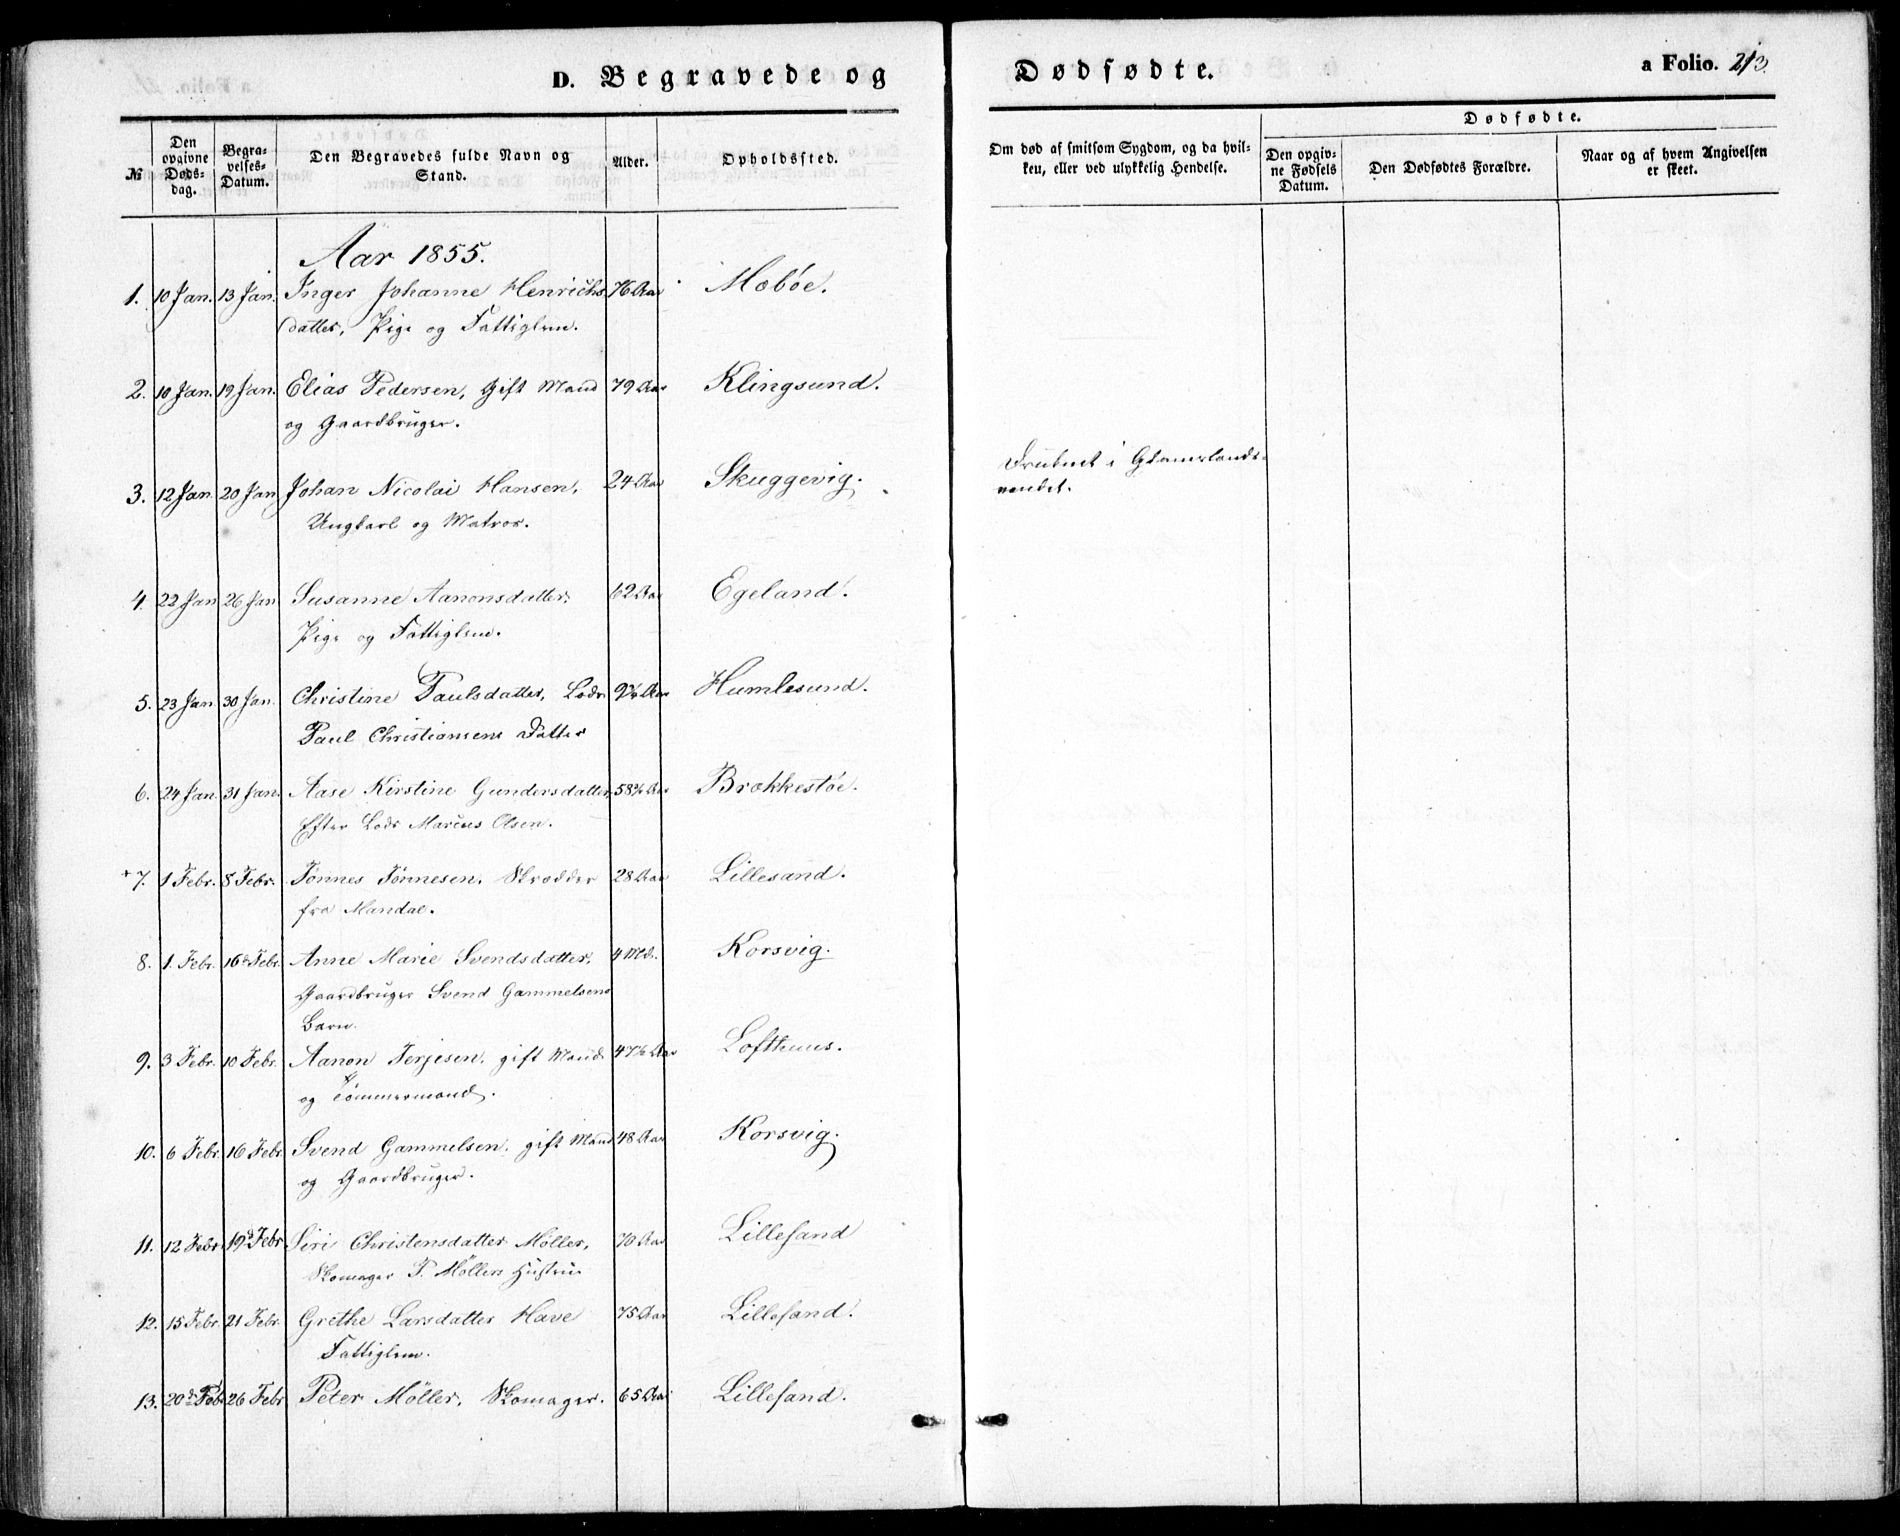 D. Begravede og Dødfødte. a Folio. 213.
№
Den opgivne Døds-dag.
Begra-velses-Datum.
Den Begravedes fulde Navn og Stand.
Alder.
Opholdssted.
Om død af smitsom Sygdom, og da hvil-ken, eller ved ulykkelig Hendelse.
Dødfødte.
Den opgiv-ne Fødsels Datum.
Den Dødfødtes Forældre.
Naar og af hvem Angivelsen er skeet.
Aar 1855.
1. 10 Jan. 13 Jan. Inger Johanne Henrichs 76 Aar Mebøe.
datter, Pige og Fattiglem.
2. 10 Jan. 19 Jan. Elias Pedersen, Gift Mand 79 Aar Klingsund.
og Gaardbruger.
3. 12 Jan. 20 Jan. Johan Nicolai Hansen, 24 Aar Skuggevig. Druknet i Gramerlands-
Ungkarl og Matros. vandet.
4. 22 Jan 26 Jan Susanne Aanonsdatter, 62 Aar Egeland.
Pige og Fattiglem.
5. 23 Jan. 30 Jan. Christine Paulsdatter, Lods Aar Humlesund.
Paul Christiansens Datter
6. 24 Jan. 31 Jan. Aase Kirstine Gundersdatter, Aar Brækkestøe.
Efter Lods Marcus Olsen.
+7. 1 Febr. 8 Febr. Tønnes Tønnesen, Skrædder 28 Aar Lillesand.
fra Mandal.
8. 1. Febr. 16 Febr. Anne Marie Svendsdatter, 4 Md. Korsvig.
Gaardbruger Svend Gammelsens
Barn.
9. 3 Febr. 10 Febr. Aanon Terjesen, gift Mand Aar Lofthuus.
og Tømmermand.
10. 6 Febr. 16 Febr. Svend Gammelsen, gift Mand 48 Aar Korsvig.
og Gaardbruger.
11. 12 Febr. 19 Febr Siri Christensdatter Møller, 70 Aar Lillesand
Skomager P. Møllers Hustru
12. 15 Febr. 21 Febr. Grethe Larsdatter Have 75 Aar Lillesand.
Fattiglem.
13. 20 Feb. 26 Febr Peter Møller, Skomager. 65 Aar Lillesand.